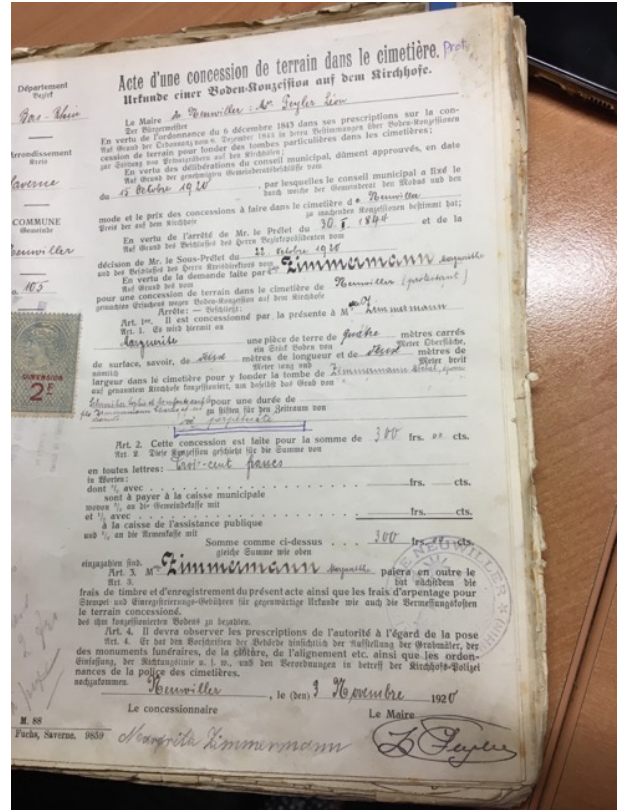 Acte d'une concession de terrain dans le cimetière. Prot.
Urkunde einer Boden-Konzession auf dem Kirchhofe.
Département
Bezirk
Bas-Rhin
Arrondissement
Kreis
Saverne
COMMUNE
Gemeinde
Neuwiller
105
DIMENSION
2F
Le Maire de Neuwiller : Mr. Peyler Léon
Der Bürgermeister
En vertu de l'ordonnance du 6 décembre 1843 dans ses prescriptions sur la con-
Auf Grund der Ordonnanz vom 6. Dezember 1843 in deren Bestimmungen über Boden-Konzessionen
cession de terrain pour fonder des tombes particulières dans les cimetières;
zur Stiftung von Privatgräbern auf den Kirchhöfen;
En vertu des délibérations du conseil municipal, dûment approuvées, en date
Auf Grund der genehmigten Gemeinderatsbeschlüsse vom
du 15 Octobre 1920, par lesquelles le conseil municipal a fixé le
durch welche der Gemeinderat den Modus und den
mode et le prix des concessions à faire dans le cimetière de Neuwiller
Preis der auf dem Kirchhof zu machenden Konzessionen bestimmt hat;
En vertu de l'arrêté de Mr. le Préfet du 30. I. 1844 et de la
Auf Grund des Beschlusses des Herrn Bezirkspräsidenten vom
décision de Mr. le Sous-Préfet du 22. octobre 1920
und des Beschlusses des Herrn Kreisdirektors vom
En vertu de la demande faite par Zimmermann Marguerite
Auf Grund des vom
pour une concession de terrain dans le cimetière de Neuwiller (protestant)
gemachten Ersuchens wegen Boden-Konzession auf dem Kirchhofe
Arrête: — Beschließt:
Art. 1er. Il est concessionné par la présente à M Zimmermann
Art. 1. Es wird hiermit an
Marguerite une pièce de terre de quatre mètres carrés
ein Stück Boden von Meter Oberfläche,
de surface, savoir, de deux mètres de longueur et de deux mètres de
nämlich Meter lang und Meter breit
largeur dans le cimetière pour y fonder la tombe de Zimmermann
auf genanntem Kirchhofe konzessioniert, um daselbst das Grab von
pour une durée de
zu stiften für den Zeitraum von
perpétuité
Art. 2. Cette concession est faite pour la somme de 300 frs. 00 cts.
Art. 2. Diese Konzession geschieht für die Summe von
en toutes lettres: trois-cent francs
in Worten:
dont % avec frs. cts.
sont à payer à la caisse municipale
wovon % an die Gemeindekasse mit
et % avec
à la caisse de l'assistance publique
und % an die Armenkasse mit
Somme comme ci-dessus 300 frs. 00 cts.
gleiche Summe wie oben
einzuzahlen sind.
Art. 3. M Zimmermann Marguerite paiera en outre le
Art. 3. hat nächstdem die
frais de timbre et d'enregistrement du présent acte ainsi que les frais d'arpentage pour
Stempel und Einregistrierungs-Gebühren für gegenwärtige Urkunde wie auch die Vermessungskosten
le terrain concessionné.
des ihm konzessionierten Bodens zu bezahlen.
Art. 4. Il devra observer les prescriptions de l'autorité à l'égard de la pose
Art. 4. Er hat den Vorschriften der Behörde hinsichtlich der Aufstellung der Grabmäler, der
des monuments funéraires, de la clôture, de l'alignement etc. ainsi que les ordon-
Einfassung, der Richtungslinie u. s. w., und den Verordnungen in betreff der Kirchhofs-Polizei
nances de la police des cimetières.
nachzukommen.
Neuwiller, le (den) 3 Novembre 1920
Le concessionnaire
Le Maire
M. 88
Fuchs, Saverne. 9859
Margarita Zimmermann
L. Peyler
DE NEUWILLER